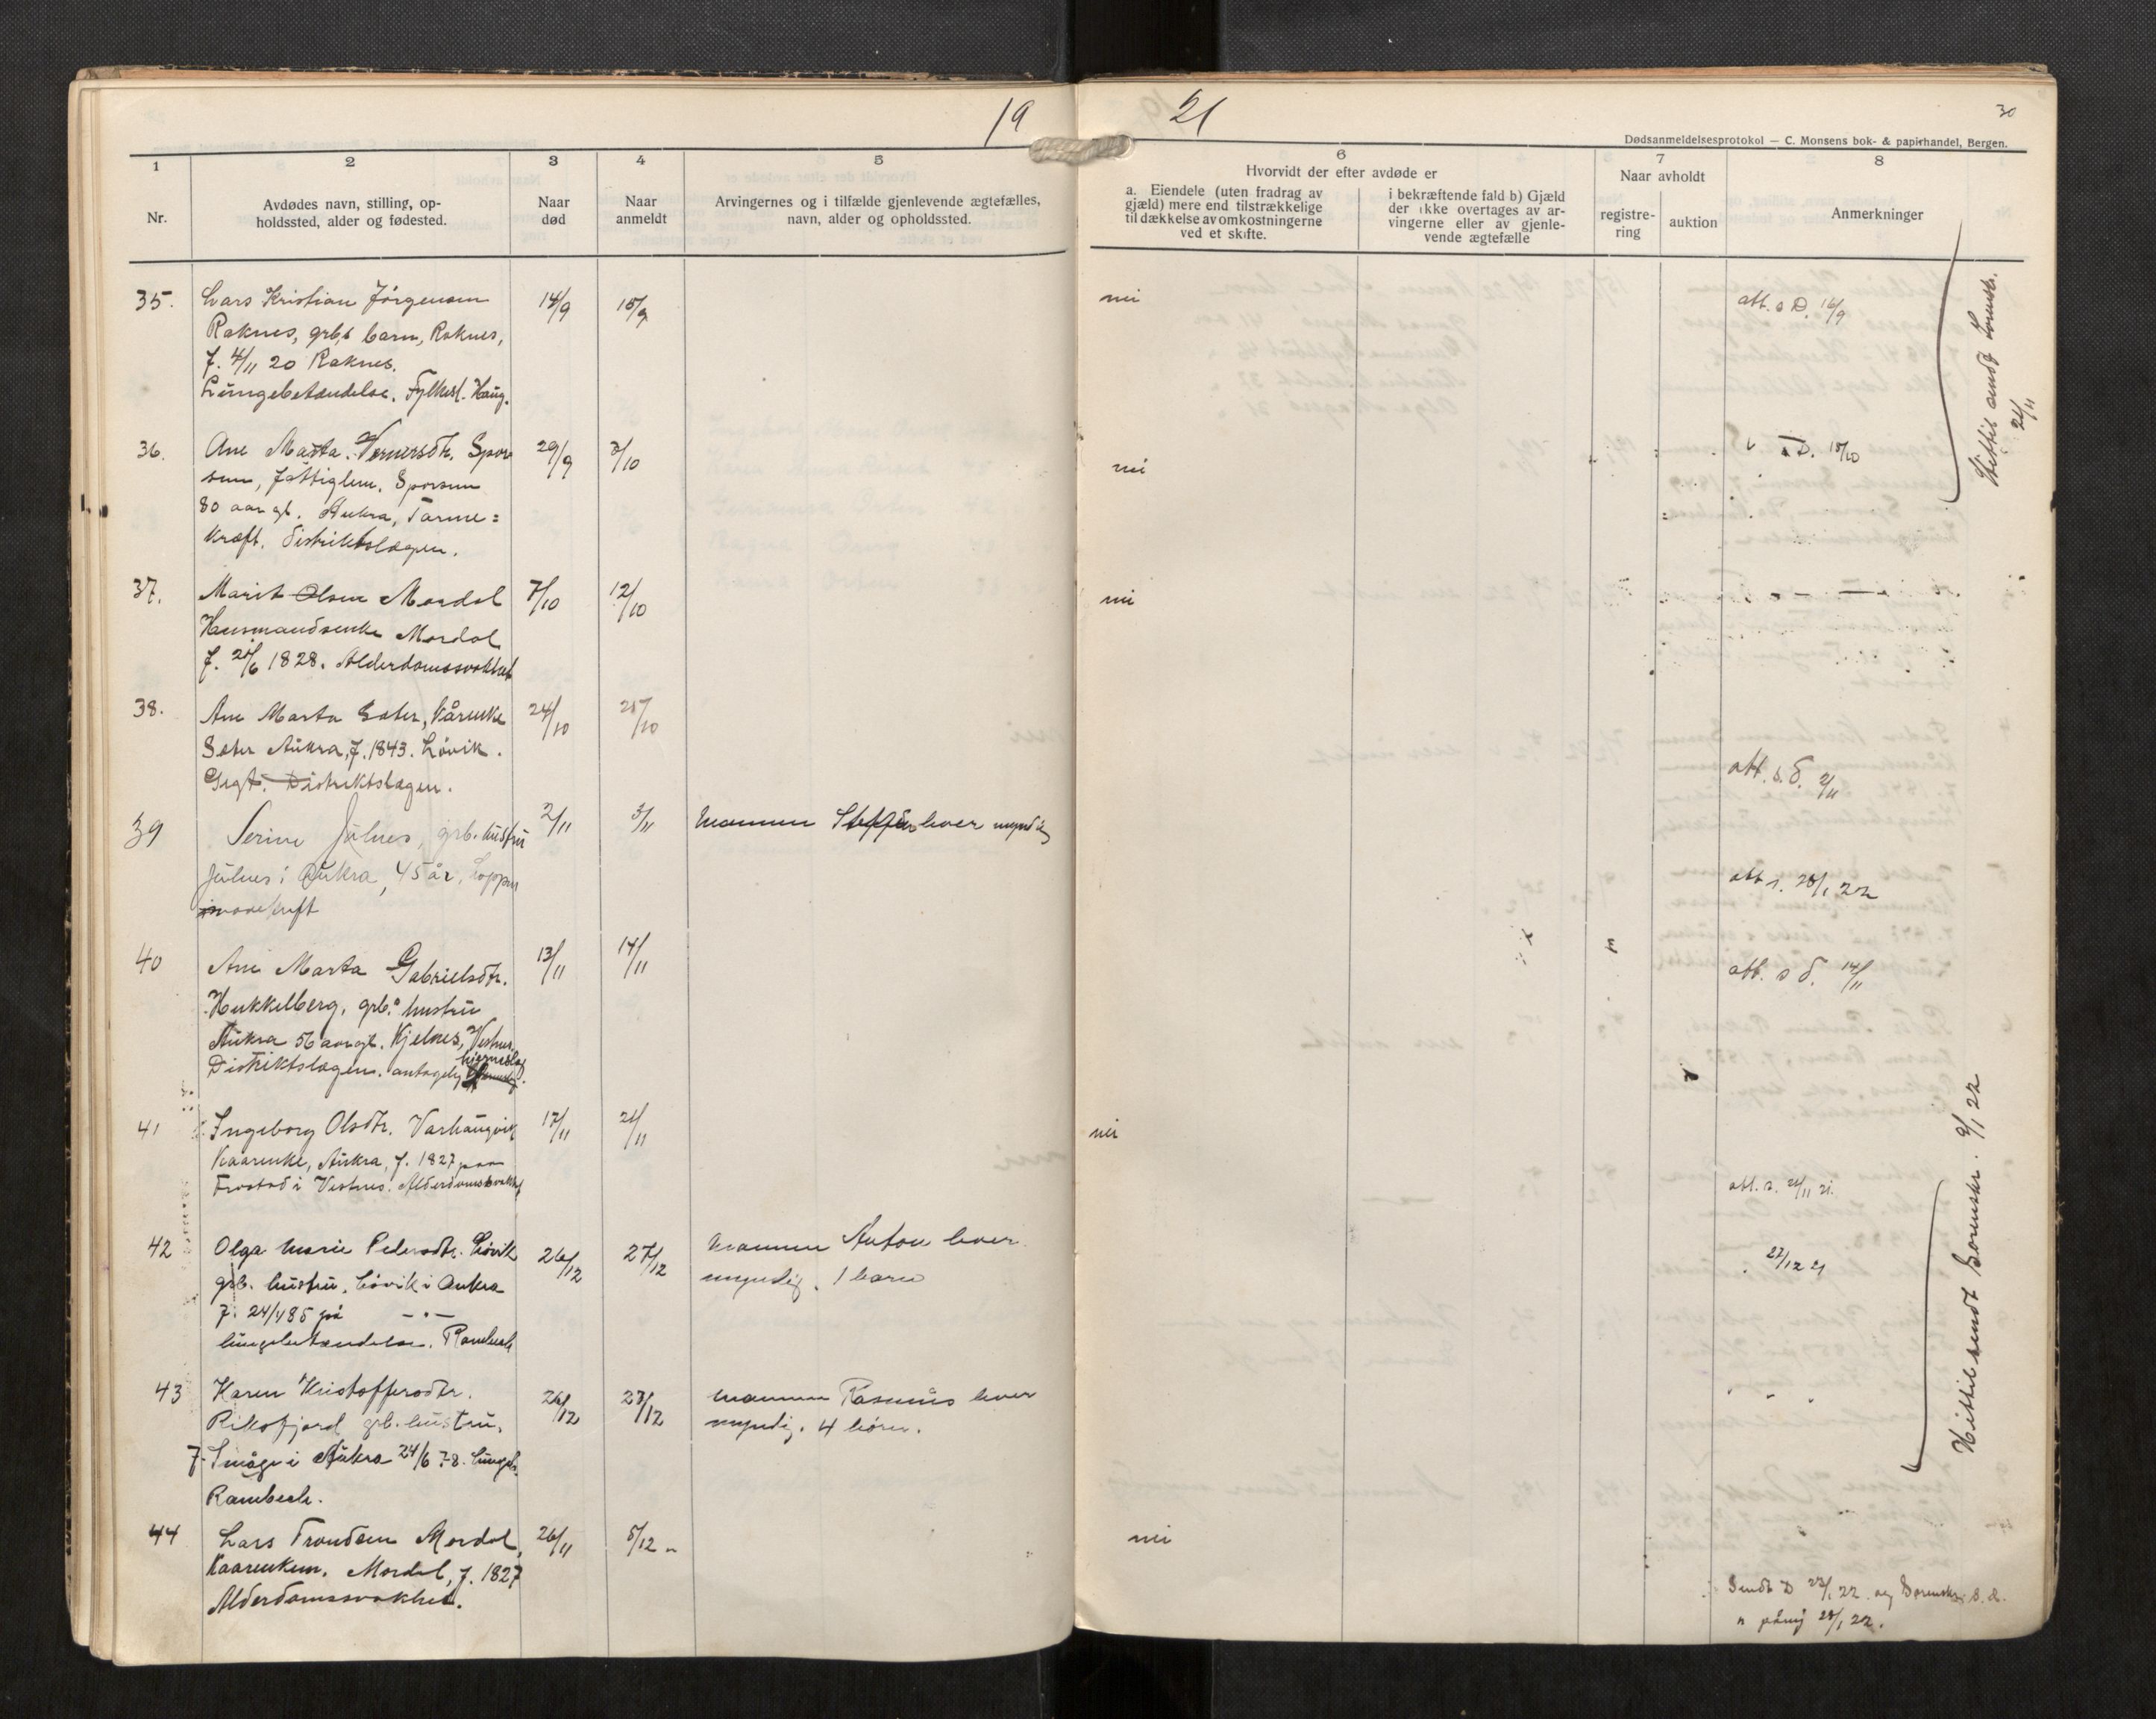 19 21
30
Dødsanmeldelsesprotokol — C. Monsens bok- & papirhandel, Bergen.
1 2 3 4 5 6 7 8
Nr.
Avdødes navn, stilling, op-
holdssted, alder og fødested.
Naar
død
Naar
anmeldt
Arvingernes og i tilfælde gjenlevende ægtefælles,
navn, alder og opholdssted.
Hvorvidt der efter avdøde er
a. Eiendele (uten fradrag av
gjæld) mere end tilstrækkelige
til dækkelse av omkostningerne
ved et skifte.
i bekræftende fald b) Gjæld
der ikke overtages av ar-
vingerne eller av gjenle-
vende ægtefælle
Naar avholdt
registre-
ring
auktion
Anmerkninger
35. Lars Kristian Jörgensen 14/9 15/9 nei att. s D. 16/9
Raknes, grb.s barn, Raknes,
f. 4/11 20 Raknes.
Lungebetændelse. Fylkesl. Haug.
36. Ane Marta Vernersdtr. Spor 29/9 3/10 nei D. 15/10
sem, fattiglem, Sporsem
80 aar gl. Aukra, Tarme=
kræft. Distriktslægen.
37. Marit Olsen Mordal 7/10 12/10 nei
Husmandsenke Mordal
f. 25/6 1828. Alderdomssvakhet
38. Ane Marta Sæter, kårenke 24/10 25/10
Sæter Aukra, f. 1843. Lövik.
Gigt. Distriktslægen.
att. s. d. 2/11
39 Serine Julnes, grb. hustru 2/11 3/11 Mannen Steffen lever myndig
Julnes i Aukra, 45 år,
att s. 28/1 22
40 Ane Marta Gabrielsdtr. 13/11 14/11 att. s d. 14/11
Hukkelberg, grb. hustru
Aukra 56 aar gl. Kjelnes, Vestnes
Distriktslægen. antagelig hjerneslag.
41 Ingeborg Olsdtr. Varhaugvik 17/11 21/11 nei
Kaarenke, Aukra, f. 1827 paa
Frostad i Vestnes. Alderdomssvakhet
att. s. 21/11 21.
42 Olga Marie Pedersdtr. Lövik 26/12 27/12 Mannen Anton lever
grb. hustru. Lövik i Aukra myndig. 1 barn
27/12 21
f. 24/4 85 på —"—
lungebetændelse. Rambech
43 Karen Kristoffersdtr. 26/12 27/12 Mannen Rasmus lever " " "
Riksfjord grb. hustru. myndig. 4 börn.
f. Småge i Aukra 24/6 78. Lungeb.
Rambech.
44 Lars Trondsen Mordal, 26/11 5/12 nei
Kaarenkem. Mordal, f. 1827
Alderdomssvakhet.
Sendt D 23/1 22. og Sorenskr. s. d.
" påny 28/1 22.
Hittil sendt Sorensk.
24/11
Hittil sendt Sorenskr. 9/1 22